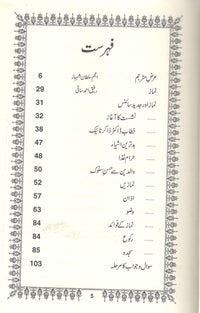 فہرست
عرض مترجم انجم سلطان شہباز 6
نماز رفیق احمد ساقی 29
نماز اور جدید سائنس 31
نشست کا آغاز 32
خطاب ڈاکٹر ذاکر نائیک 38
بدترین اشیاء 47
حرام غذا 48
والدین سے حسن سلوک 50
نمازیں 52
اذان 57
وضو 63
نماز کے فوائد 84
رکوع 84
سجدہ 85
سوال و جواب کا مرحلہ 103
5